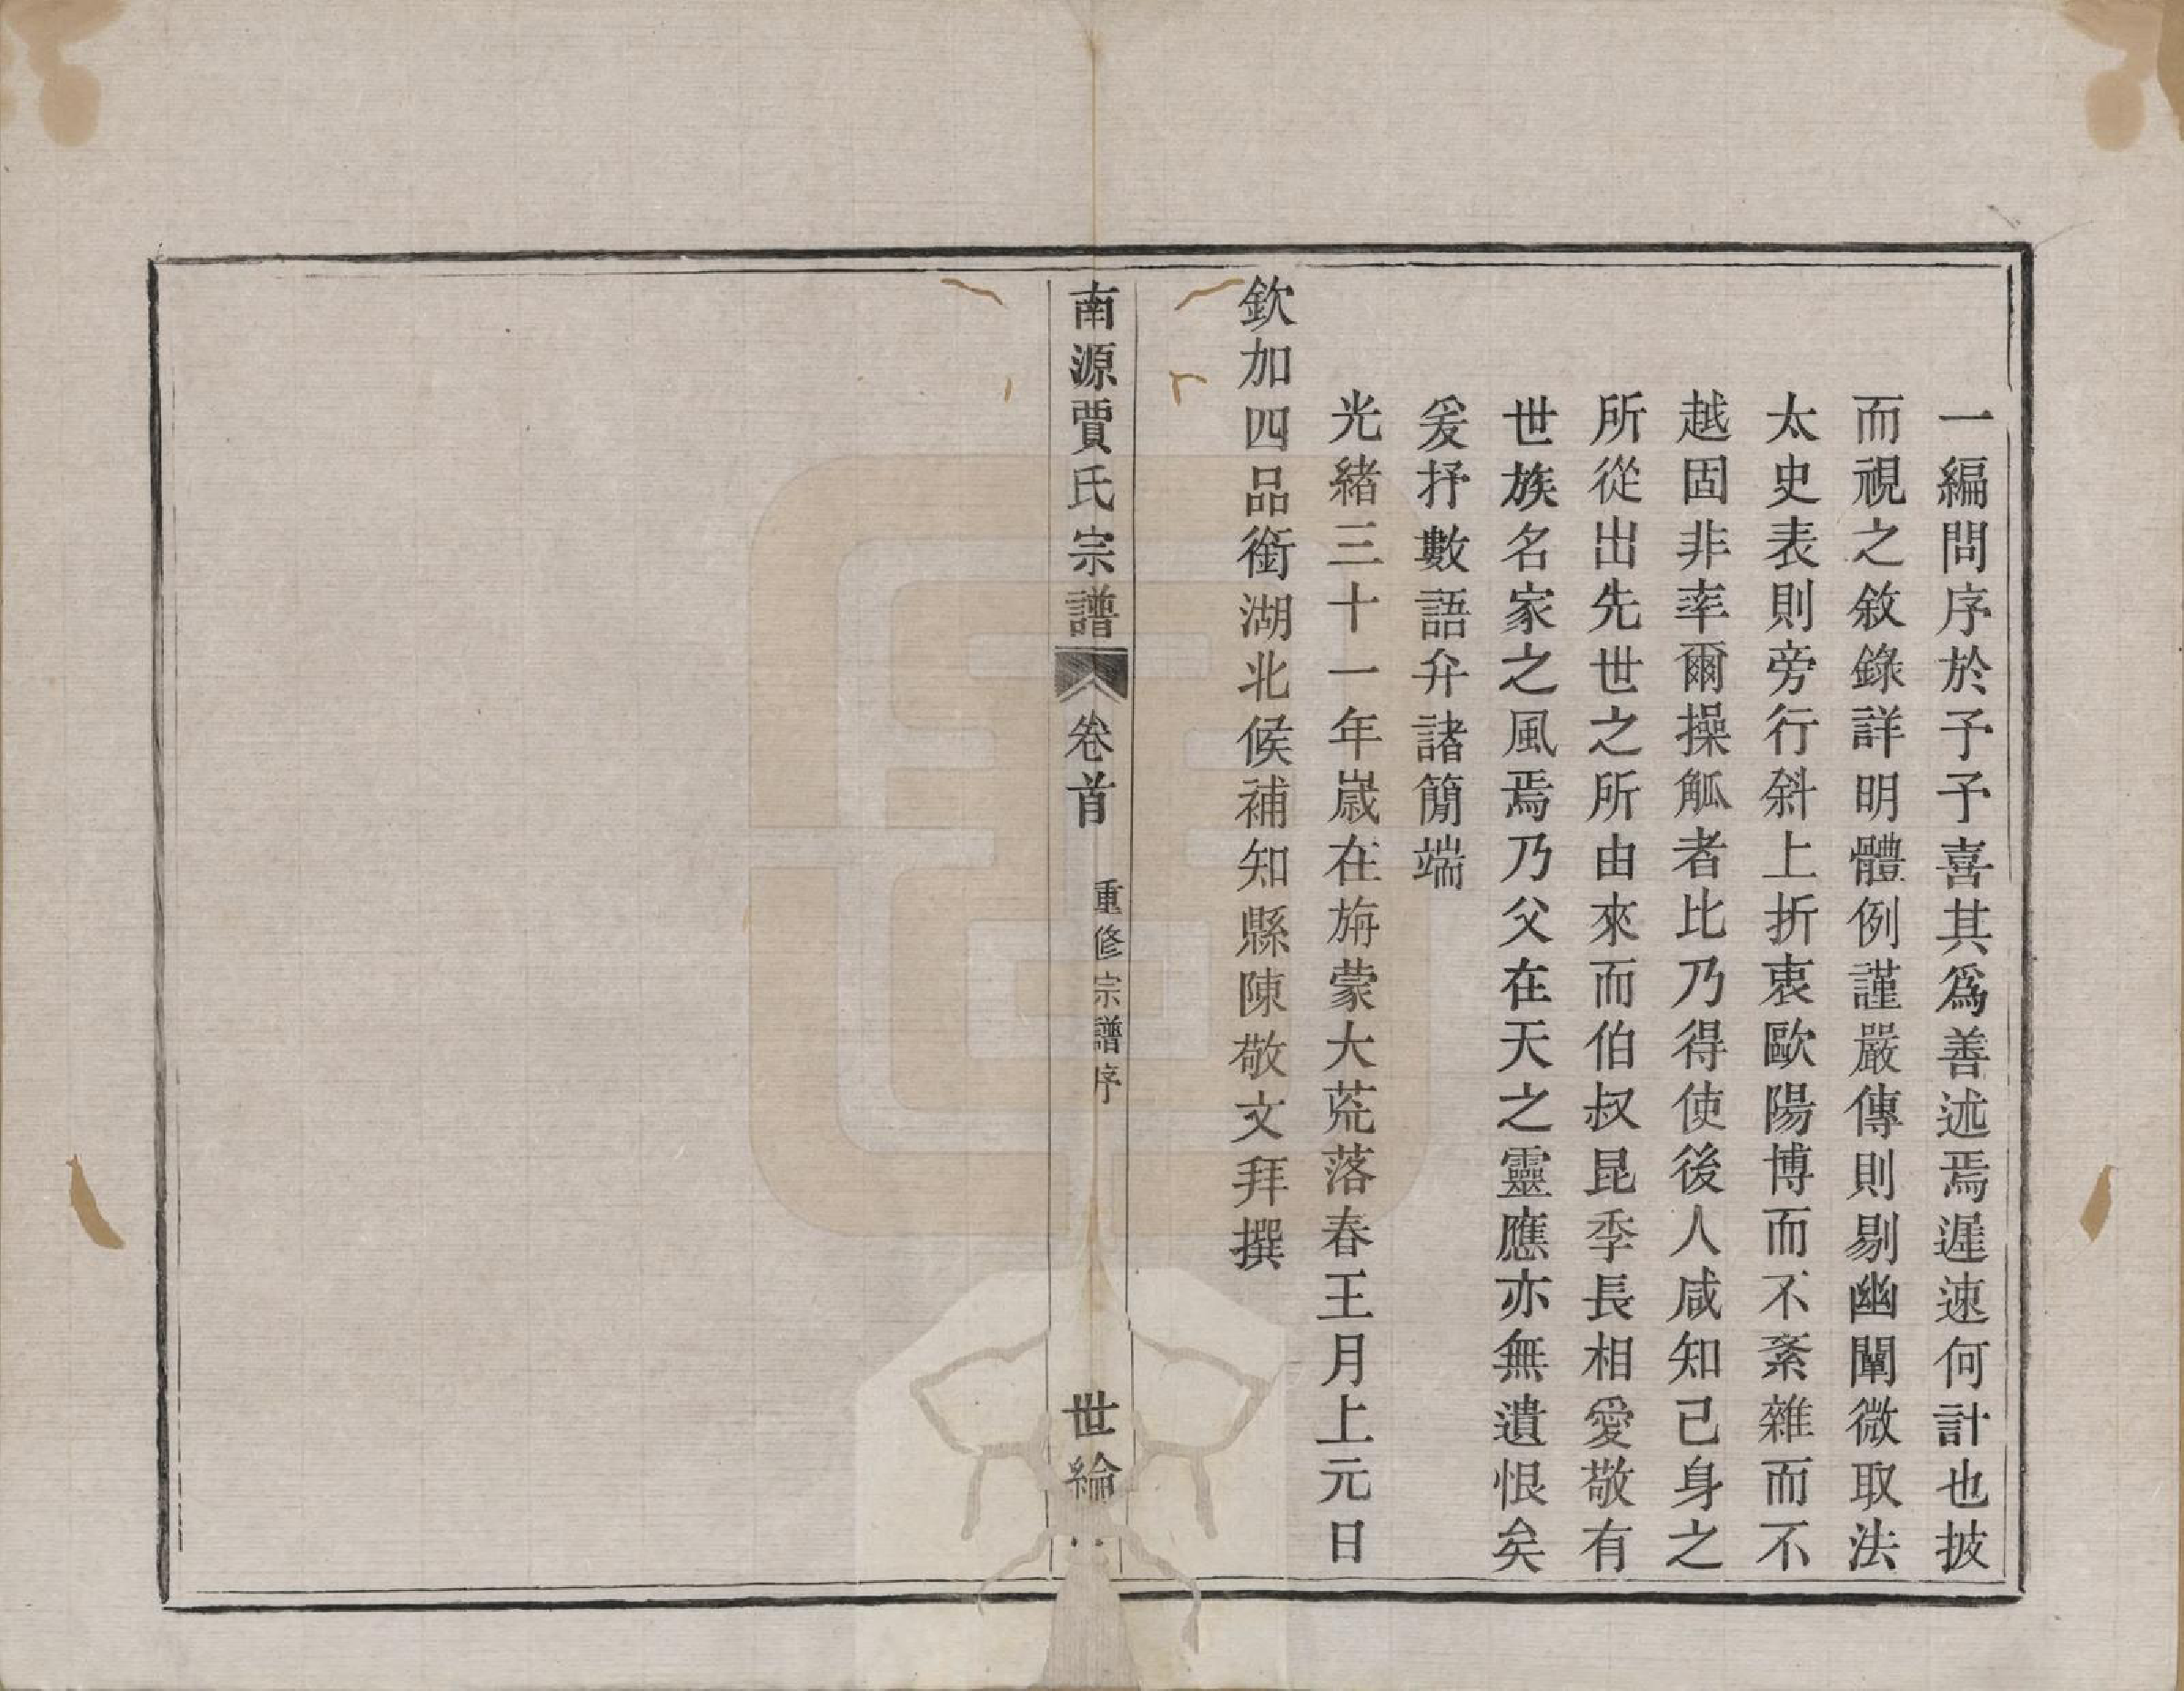 一編問序於予予喜其爲善述焉遲速何計也披
而視之敘錄詳明體例謹嚴傳則剔幽闡微取法
太史表則旁行斜上折衷歐陽博而不紊雜而不
越固非率爾操觚者比乃得使後人咸知己身之
所從出先世之所由來而伯叔昆季長相愛敬有
世族名家之風焉乃父在天之靈應亦無遺恨矣
爰抒數語弁諸簡端
光緒三十一年歲在旃蒙大荒落春王月上元日
欽加四品銜湖北候補知縣陳敬文拜撰
南源賈氏宗譜 卷首 重修宗譜序 世綸